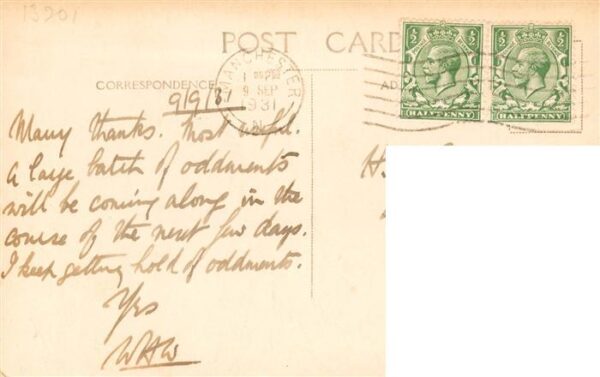 13201
POST CARD
CORRESPONDENCE
MANCHESTER
9 SEP
1931
½ ½
HALFPENNY
½ ½
HALFPENNY
9/9/31
Many thanks. Most
A large batch of oddments
will be coming along in the
course of the next few days.
I keep getting hold of oddments.
Yrs
WHW
H.